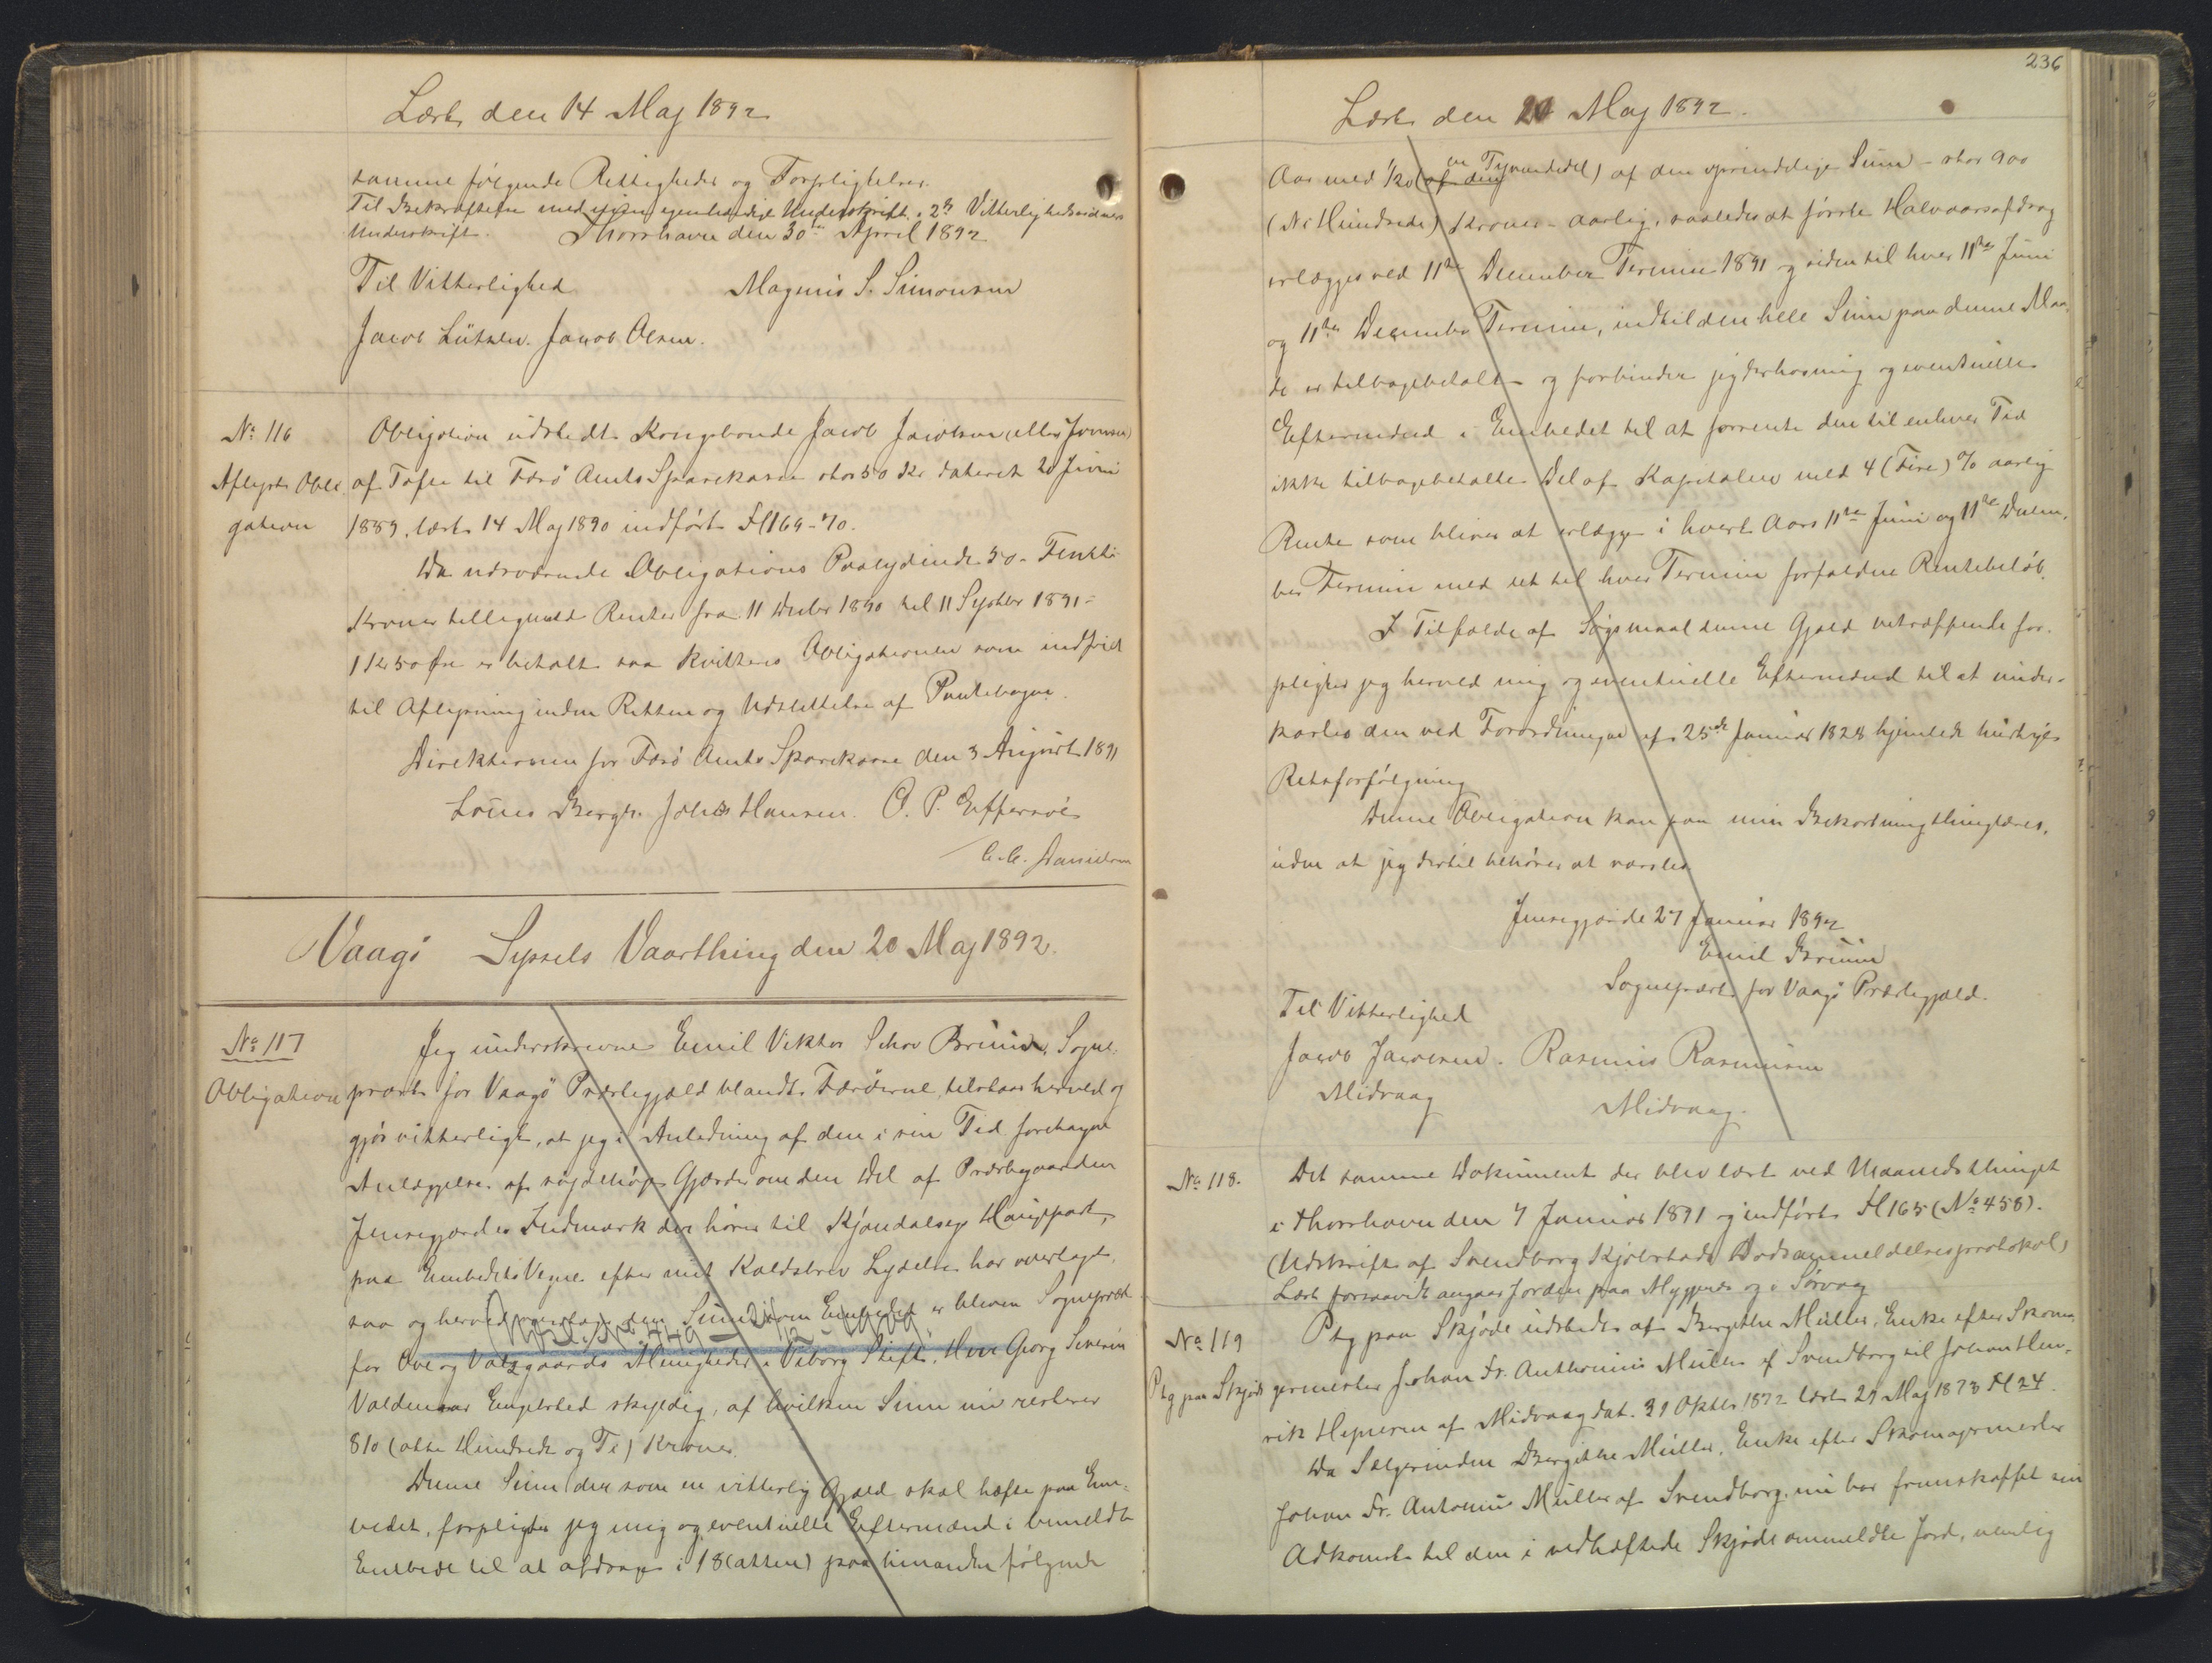 Læst den 14 Maj 1892
samme følgende Rettigheder og Forpligtelser.
Til Bekræftelse med egenhændige Underskrift, 2de Vitterlighedsvidners
Underskrift. Thorshavn den 30te April 1892
Til Vitterlighed Magnus S. Simonsen
Jacob Lützen. Jacob Olsen.
No 116 Obligation udstedt Kongsbonde Jacob Jacobsen (eller Joensen)
Aflyst Obli af Tofte til Færø Amts Sparekasse stor 50 Kr. dateret 20 Juni
gation 1889, læst 14 Maj 1890 indført Fl 169-70.
Da nærværende Obligations Paalydende 50 - Femti
Kroner tilligemed Renter fra 11 Decbr 1890 til 11 Septbr 1891 =
1 Kr 50 Øre er betalt saa kvitteres Obligationen som indfriet
til Aflysning inden Retten og Udslettelse af Pantebogen.
Direktionen for Færø Amts Sparekasse den 3 August 1891
Louis Bergh. Johs Hansen. O. P. Effersøe
C. C. Danielsen
Vaagø Syssels Vaarthing den 20 Maj 1892.
No 117 Jeg underskrevne Emil Viktor Schou Bruun, Sogne-
Obligation præst for Vaagø Præstegjæld blandt Færøerne, tilstaar herved og
gjør vitterligt, at jeg i Anledning af den i sin Tid foretagne
Anlæggelse af Gjærder om den Del af Præstegaarden
Jensegjærdes Indmark der hører til Kjøndalseys Hauspart,
paa Embedets Vegne efter mit Kaldsbrev Lydelse har overtaget,
saa og herved overtager den Sum som Embedet er bleven Sognepræst
for Ove og Valsgaards Menigheder i Viborg Stift, Herr Georg Severin
Valdemar Engelsted skyldig, af hvilken Sum nu resterer
810 (otte Hundrede og Ti) Kroner.
Denne Sum (der som en vitterlig Gjæld skal hæfte paa Em-
bedet, forpligter jeg mig og eventuelle Eftermænd i bemeldte
Embede til at afdrage i 18 (atten) paa hinanden følgende
236
Læst den 20 Maj 1892.
Aar med 1/20 (en Tyvendedel) af den oprindelige Sum - stor 900
(Ni Hundrede) Kroner - aarlig, saaledes at første Halvaarsafdrag
erlægges ved 11te December Termin 1891 og siden til hver 11te Juni
og 11te December Termin, indtil den hele Sum paa denne Maa-
de er tilbagebetalt - og forbinder jeg derhos mig og eventuelle
Eftermænd i Embedet til at forrente den til enhver Tid
ikke tilbagebetalte Del af Kapitalen med 4 (Fire) % aarlig
Rente som bliver at erlægge i hvert Aars 11te Juni og 11te Decem-
ber Termin med det til hver Termin forfaldne Rentebeløb.
I Tilfælde af Søgsmaal denne Gjæld vedrørende for-
pligter jeg herved mig og eventuelle Eftermænd til at under-
kastes den ved Forordningen af 25de Januar 1828 hjemlede hurtige
Retsforfølgning
Denne Obligation kan paa min Bekostning thinglæses,
uden at jeg dertil behøver at varsles
Jensegjærde 27 Januar 1892
Emil Bruun
Sognepræst for Vaagø Præstegjæld.
Til Vitterlighed
Jacob Jacobsen. Rasmus Rasmussen
Midvaag Midvaag.
No 118. Det samme Dokument der blev læst ved Maanedsthinget
i Thorshavn den 7 Januar 1891 og indført Fl 165 (No 458).
(Udskrift af Svendborg Kjøbstads Dødsanmeldelsesprotokol)
Læst forsaavidt angaar Jorden paa Myggenæs og i Sørvaag
No 119 Ptg paa Skjøde udstedt af Bergithe Müller, Enke efter Skoma-
Ptg paa Skjøde germester Johan Fr. Anthonius Müller af Svendborg til Johan Hen-
rik Hejnesen af Midvaag dat. 31 Oktbr 1872 læst 29 Maj 1873 Fl 24.
Da Sælgerinden Bergithe Müller, Enke efter Skomagermester
Johan Fr. Antonius Müller af Svendborg, nu har fremskaffet sin
Adkomst til den i vedhæftede Skjøde ommeldte Jord, nemlig